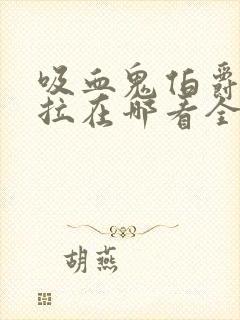 吸血鬼伯爵
拉在哪看全
胡燕